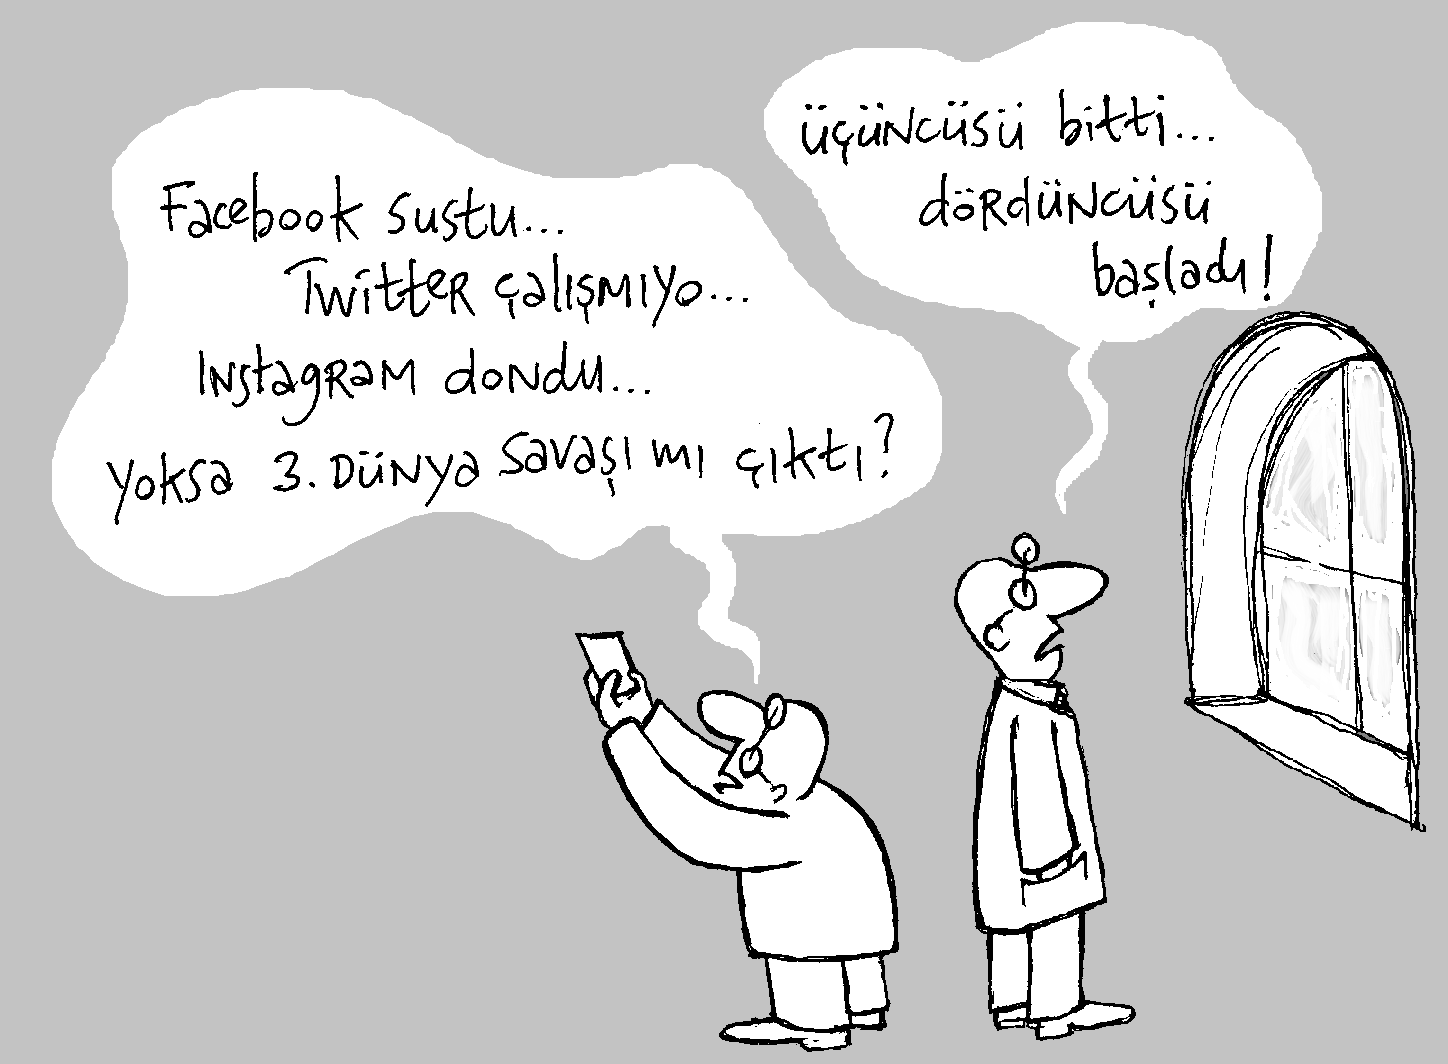 Facebook sustu...
Twitter çalışmıyo...
Instagram dondu...
Yoksa 3. Dünya savaşı mı çıktı?
üçüncüsü bitti...
dördüncüsü
başladı!